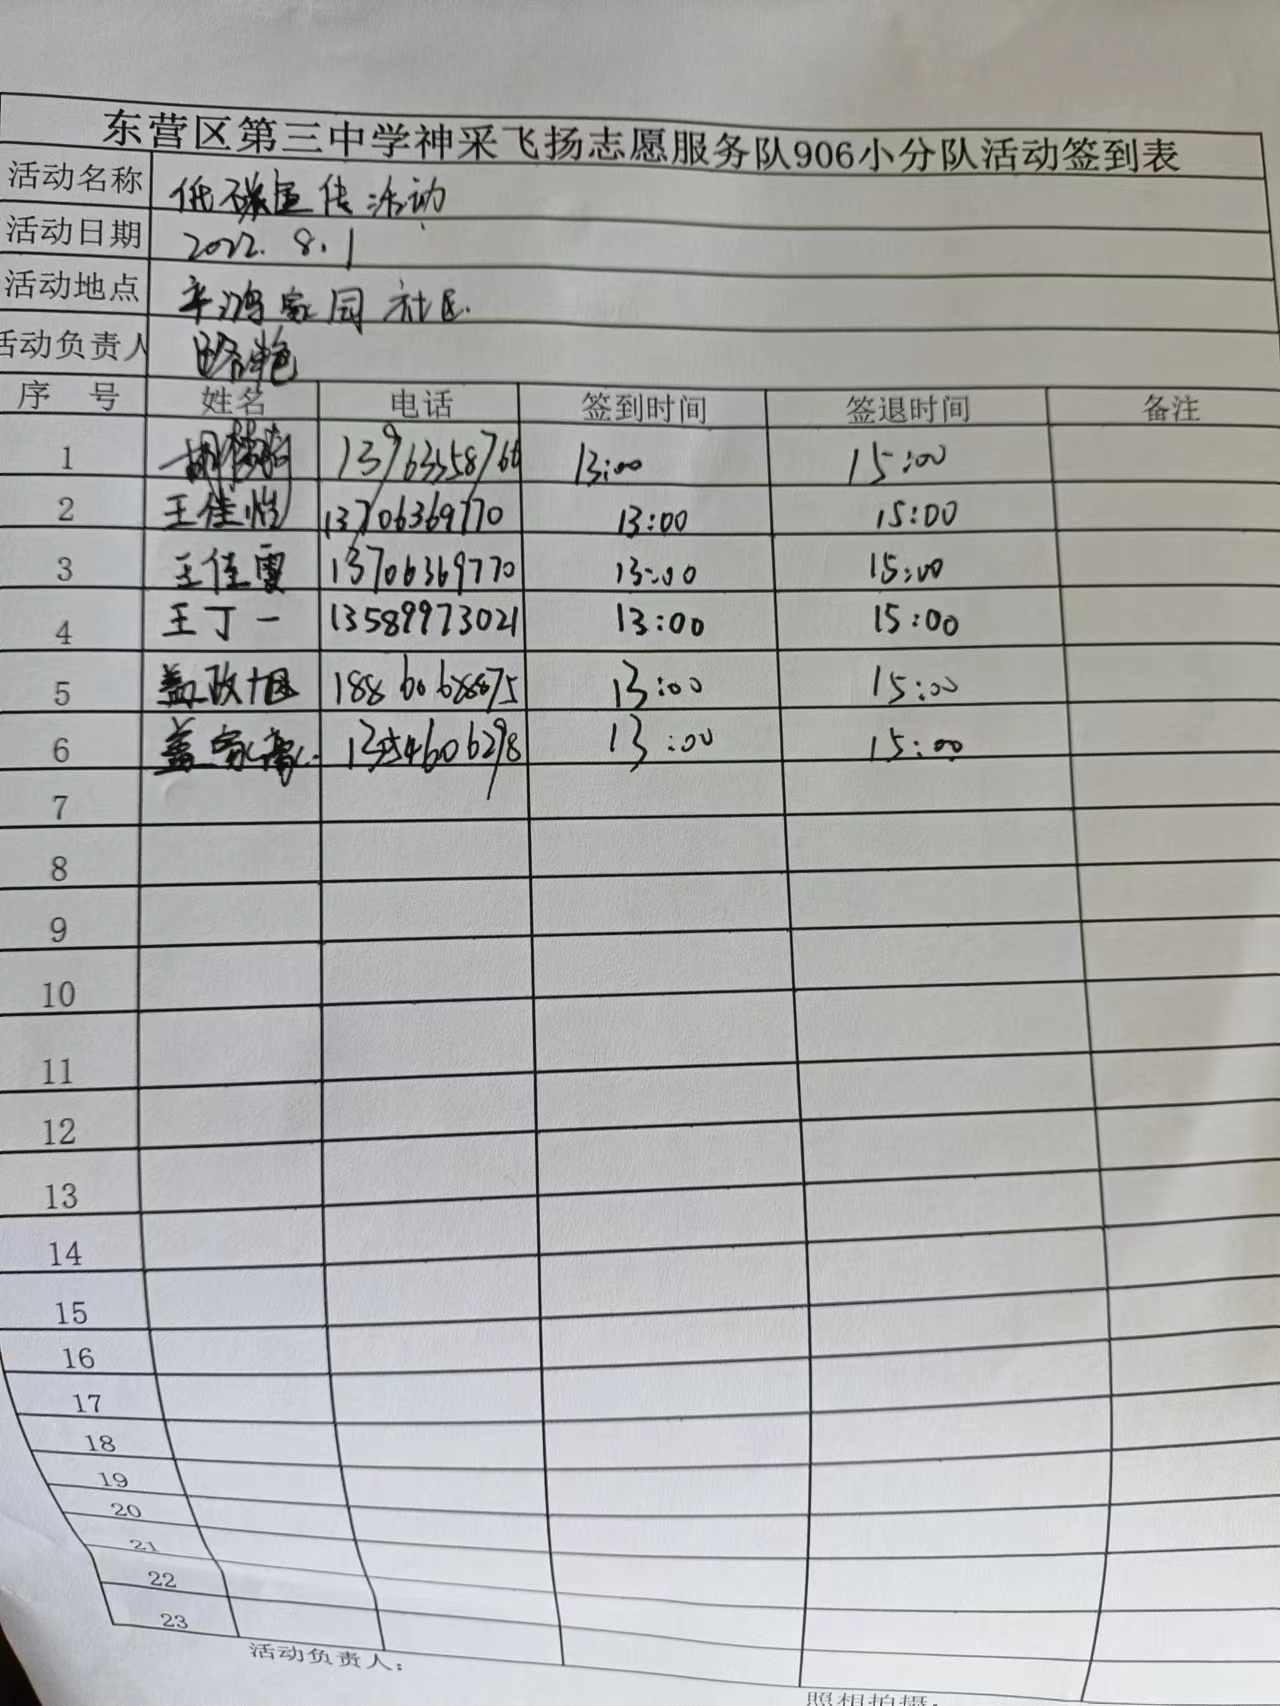 东营区第三中学神采飞扬志愿服务队906小分队活动签到表
活动名称 低碳宣传活动
活动日期 2022.8.1
活动地点 辛鸿家园社区.
活动负责人
序 号 姓名 电话 签到时间 签退时间 备注
1 胡 13963358766 13:00 15:00
2 王佳怡 13706369770 13:00 15:00
3 王佳雯 13706369770 13:00 15:00
4 王丁一 13589973021 13:00 15:00
5 盖政旭 13:00 15:00
6 盖家豪 13:00 15:00
7
8
9
10
11
12
13
14
15
16
17
18
19
20
21
22
23
活动负责人：
照相拍摄：